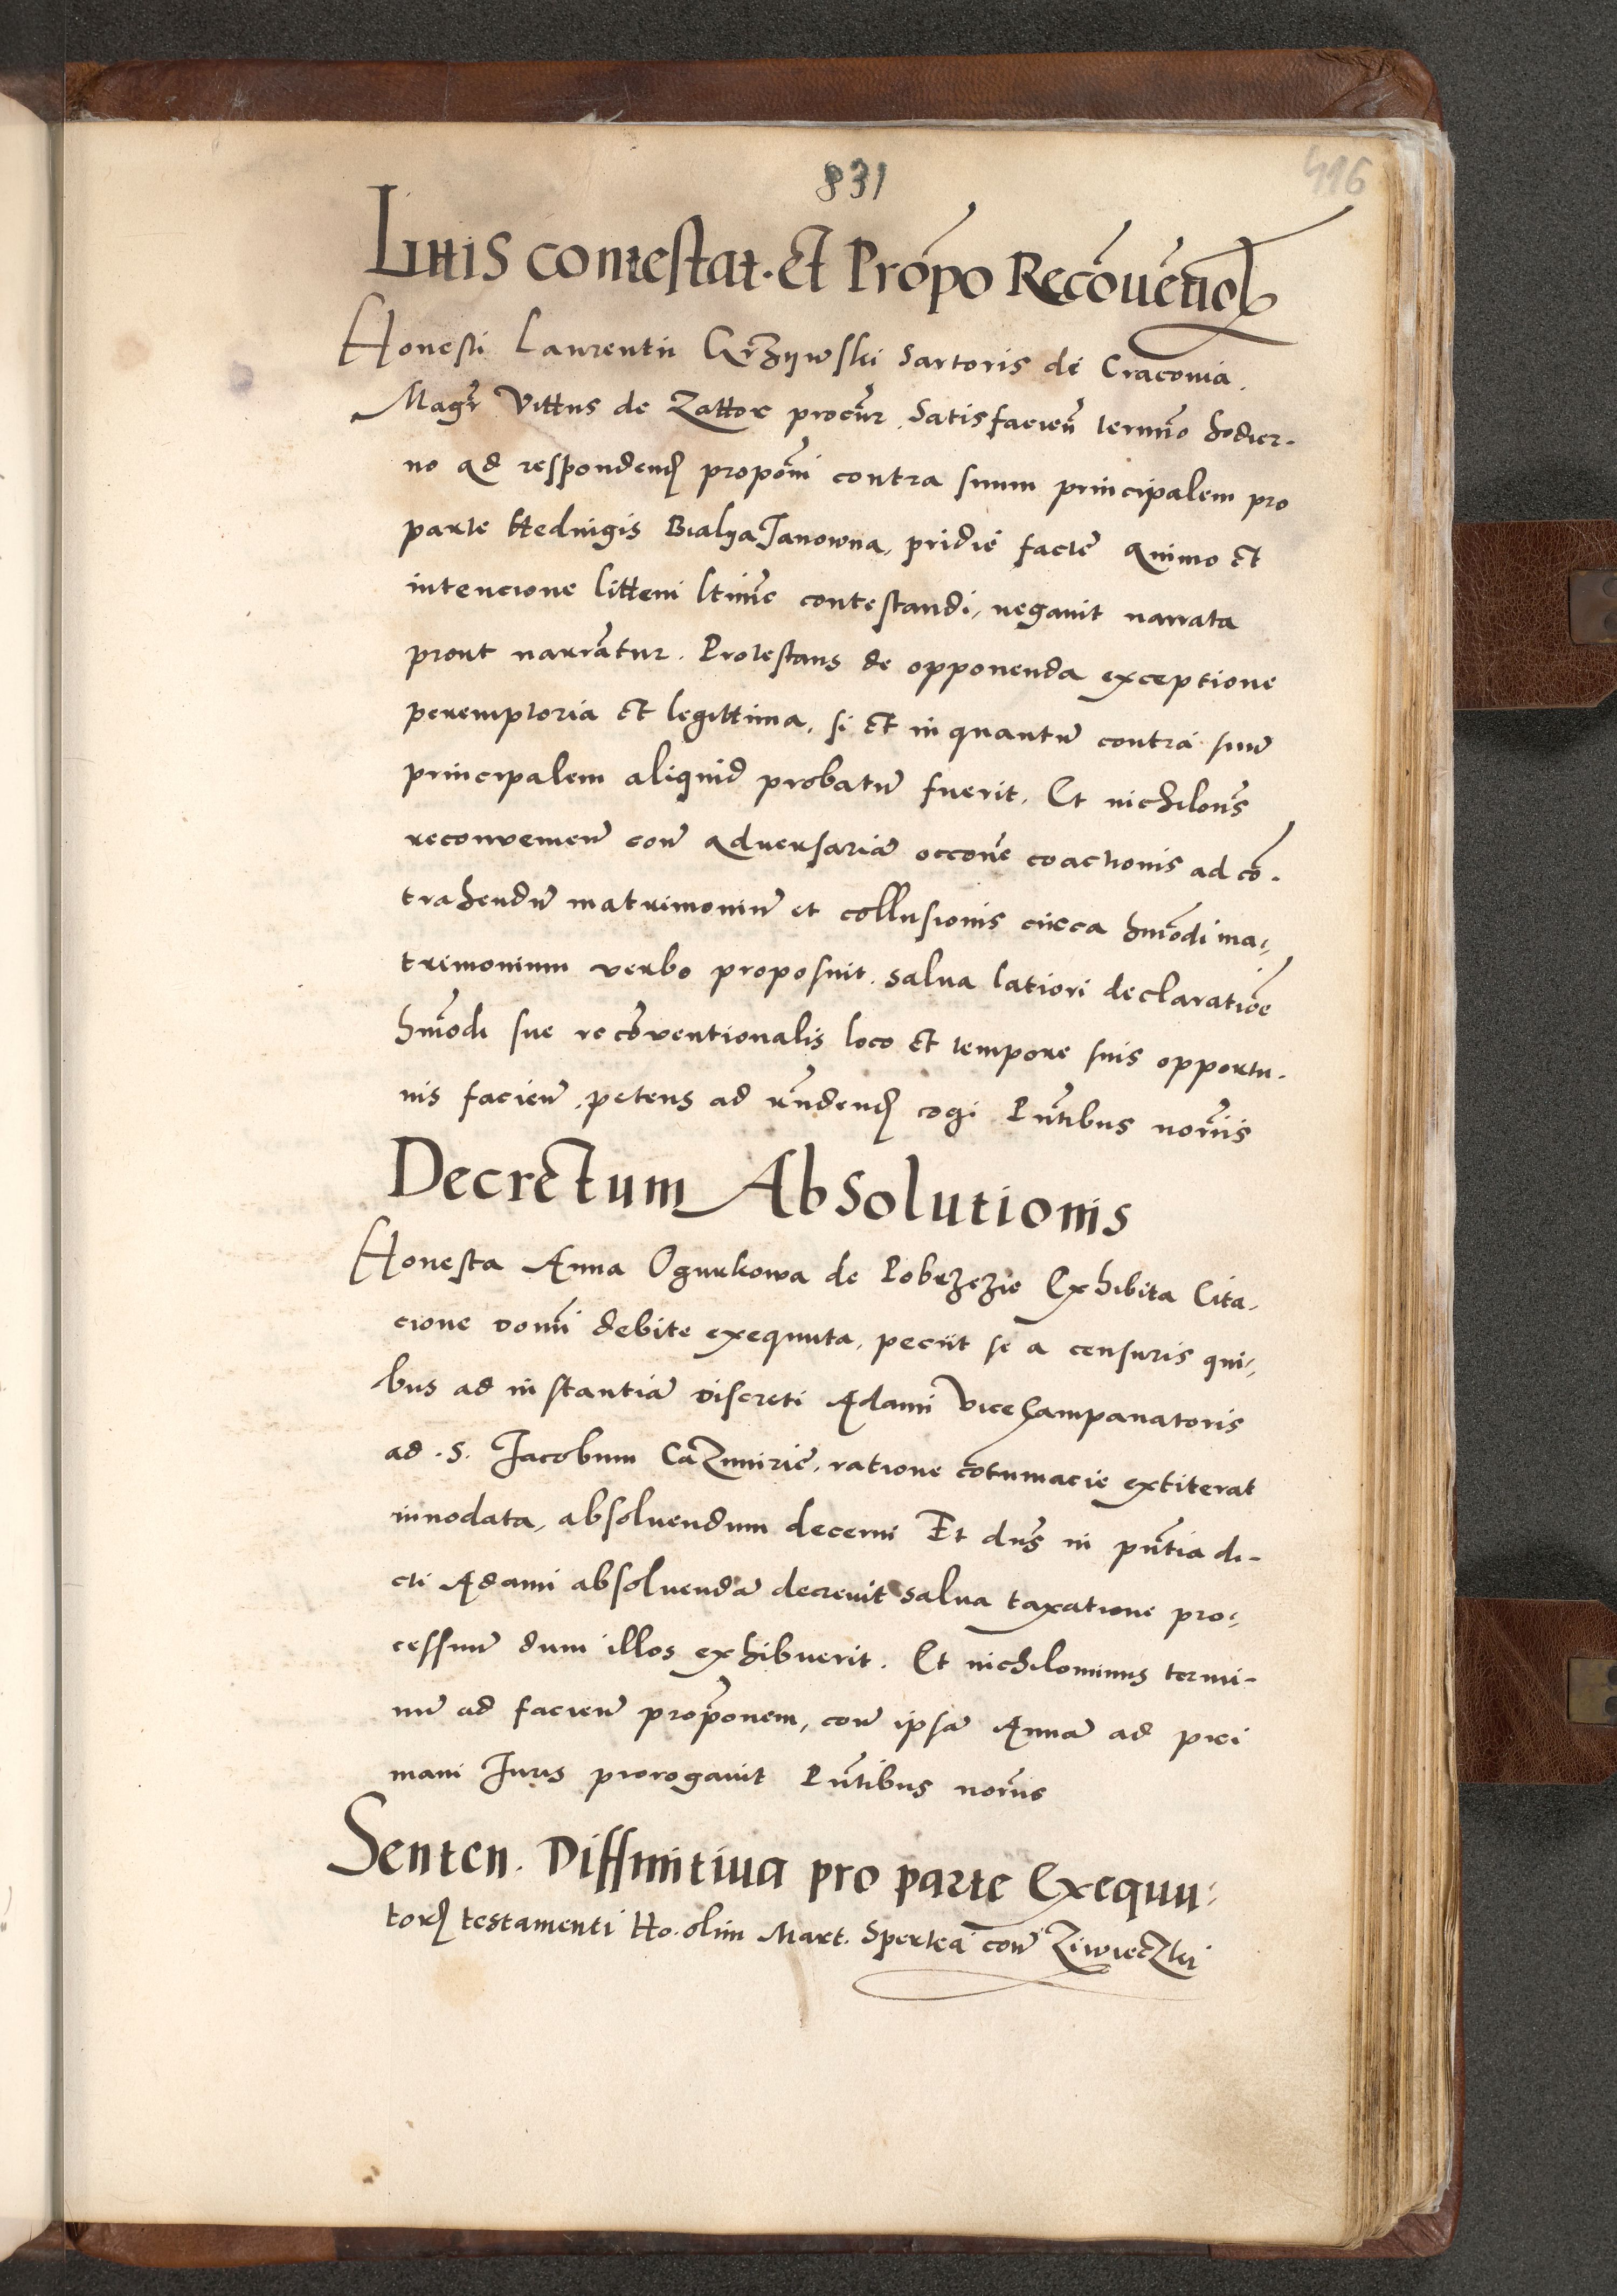 831
416
Littis contestat. Et Propo Recouenol
Honesti Laurentii Grzywski Sartoris de Craconia.
Magr Vittus de Zattor procur. Satisfacien termino hodier-
no ad respondend proponi contra suum principalem pro
parte Heduigis Bialya Janowna, pridie facte animo et
intencione litteni ltime contestandi, negauit narrata
prout narrantur. Protestans de opponenda exceptione
peremptoria et legittima, si et in quantu contra suu
principalem aliquid probatu fuerit. Et nichilomus
reconuenien con aduersaria occone coactionis ad co-
trahendu matrimoniu et collusionis circa hmodi ma-
trimonium verbo proposuit. salua latiori declaratioe
hmodi sue recoventionalis loco et tempore suis opportu-
nis facien, petens ad rndend cogi Pntibus notriis
Decretum Absolutionis
Honesta Anna Ogurkowa de Pobrzezie Exhibita Cita-
cione domi debite exequuta, peciit se a censuris qui-
bus ad instantia discreti Adami vicecampanatoris
ad. S. Jacobum Cazimirie, ratione cotumacie extiterat
innodata, absoluendum decerni Et dns in pntia di-
cti Adami absoluenda decreuit salua taxatione pro-
cessuu dum illos exhibuerit. Et nichilominus termi-
nu ad facien proponem, con ipsa Anna ad pri
mani Juris prorogauit Pntibus notriis
Senten. Diffinitiua pro parte Exequu-
tor testamenti Ho. olim Mart. Sperka con Ziwieczki